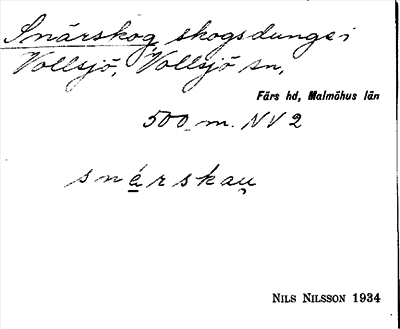 Snårskog, skogsdunge i
Vollsjö, Vollsjö sn,
Färs hd, Malmöhus län
500 m. NV 2
snårskau̯
NILS NILSSON 1934